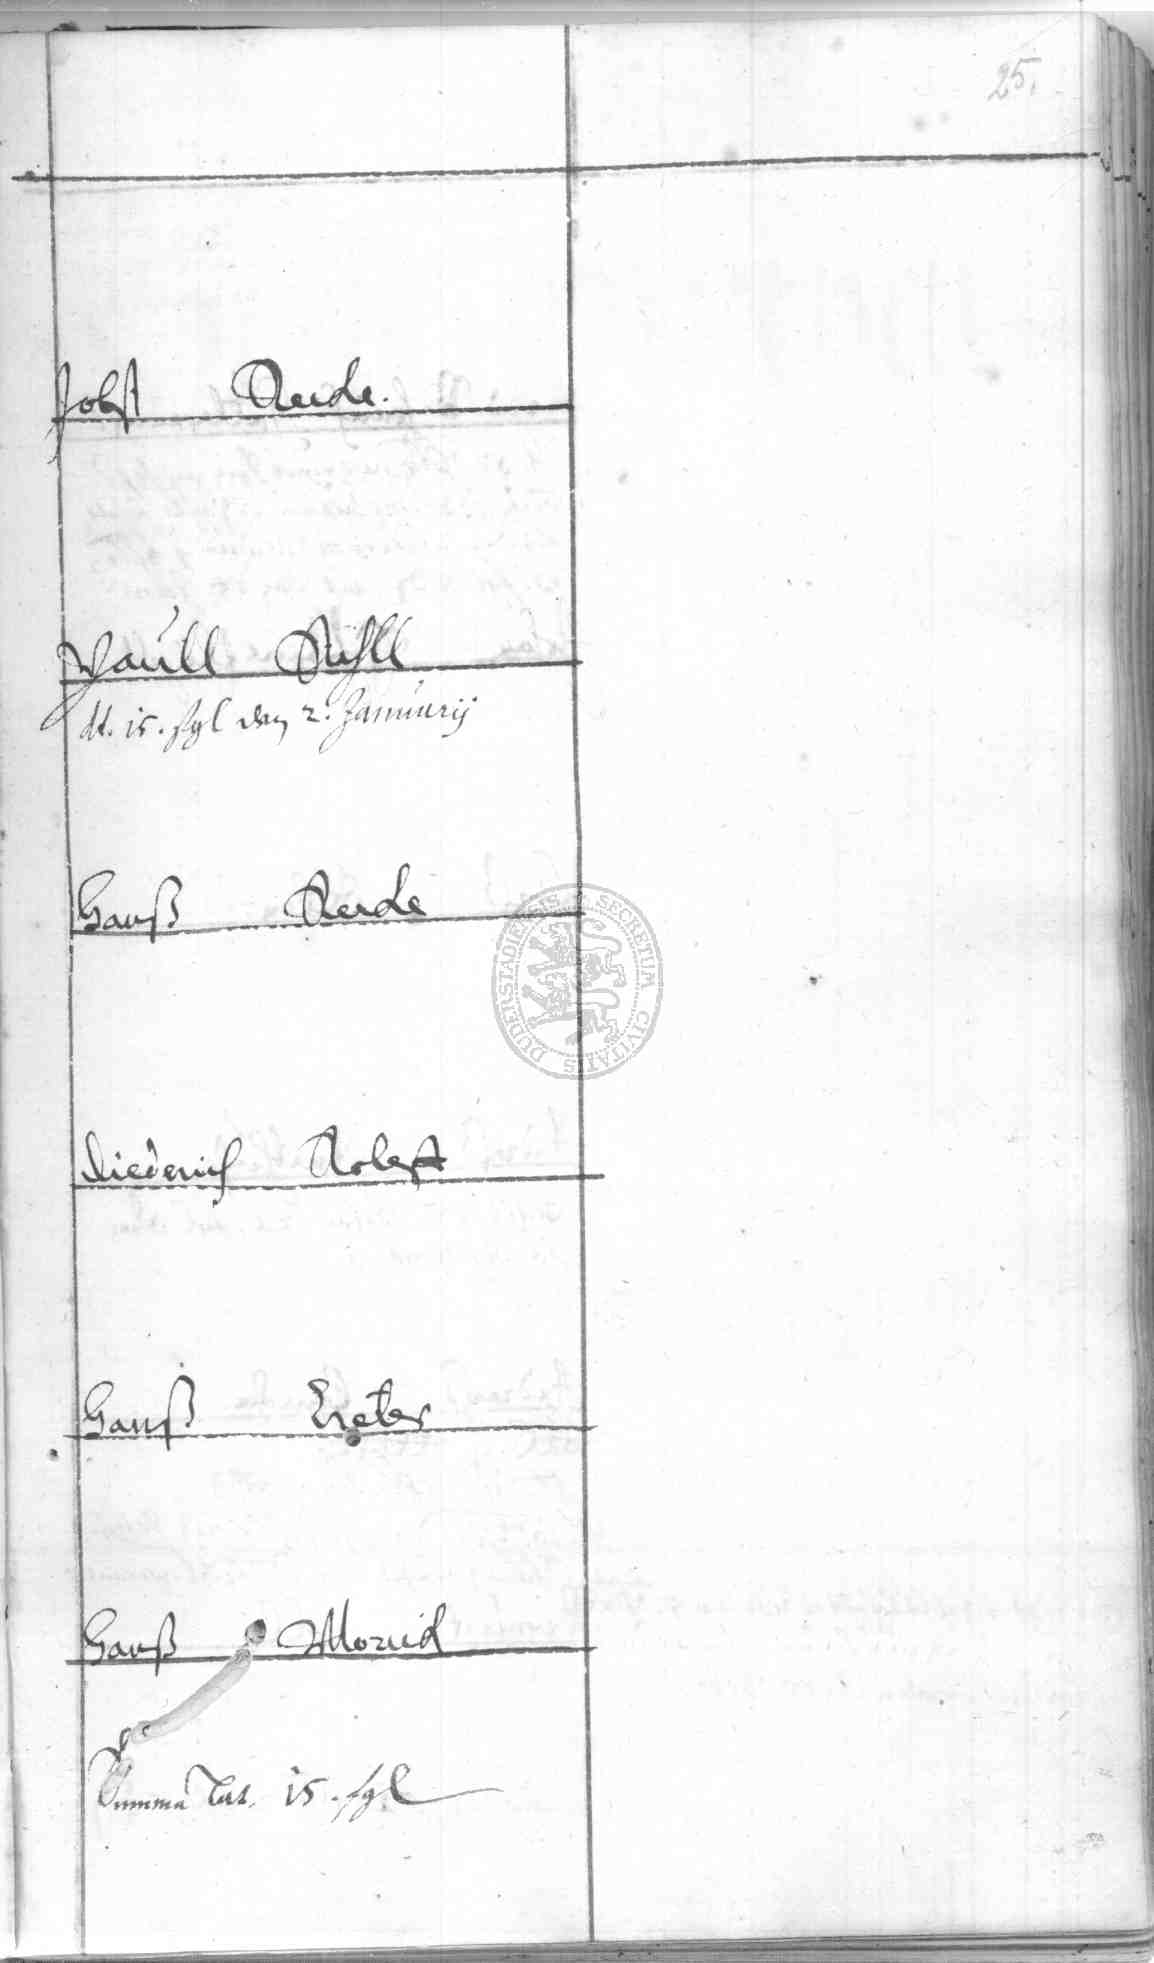 25.
Jobst Rede.
Paull Rühll
dt. 15. sgl den 2. Januarij
Hanß Rede
Diederich Robest
Hanß Ereter
Hanß Morick
Summa Lat. 15. sgl
SECRETUM CIVITATIS DUDERSTADIENSIS